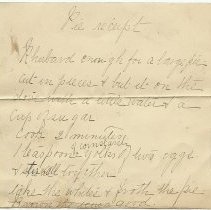 Pie receipt
Rhubard enough for a large pie
cut in pieces & put it on the
with a little water & a
cup sugar
Cook 2 minutes
1 teaspoon cornstarch yolks of two eggs
& together
take the whites & froth the pie
good